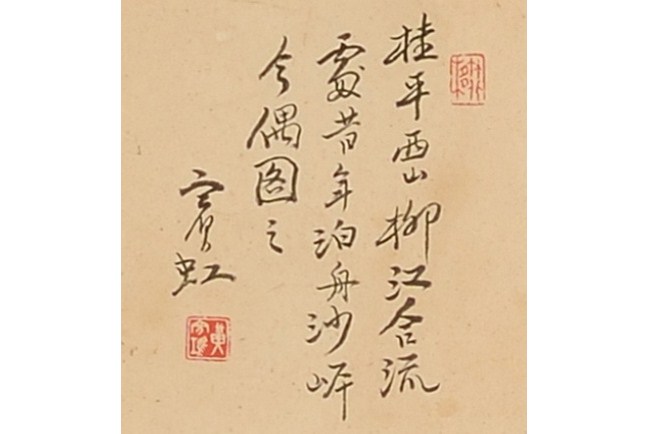 桂平西山柳江合流
處昔年泊舟沙岸
今偶图之
賓虹
黄賓虹